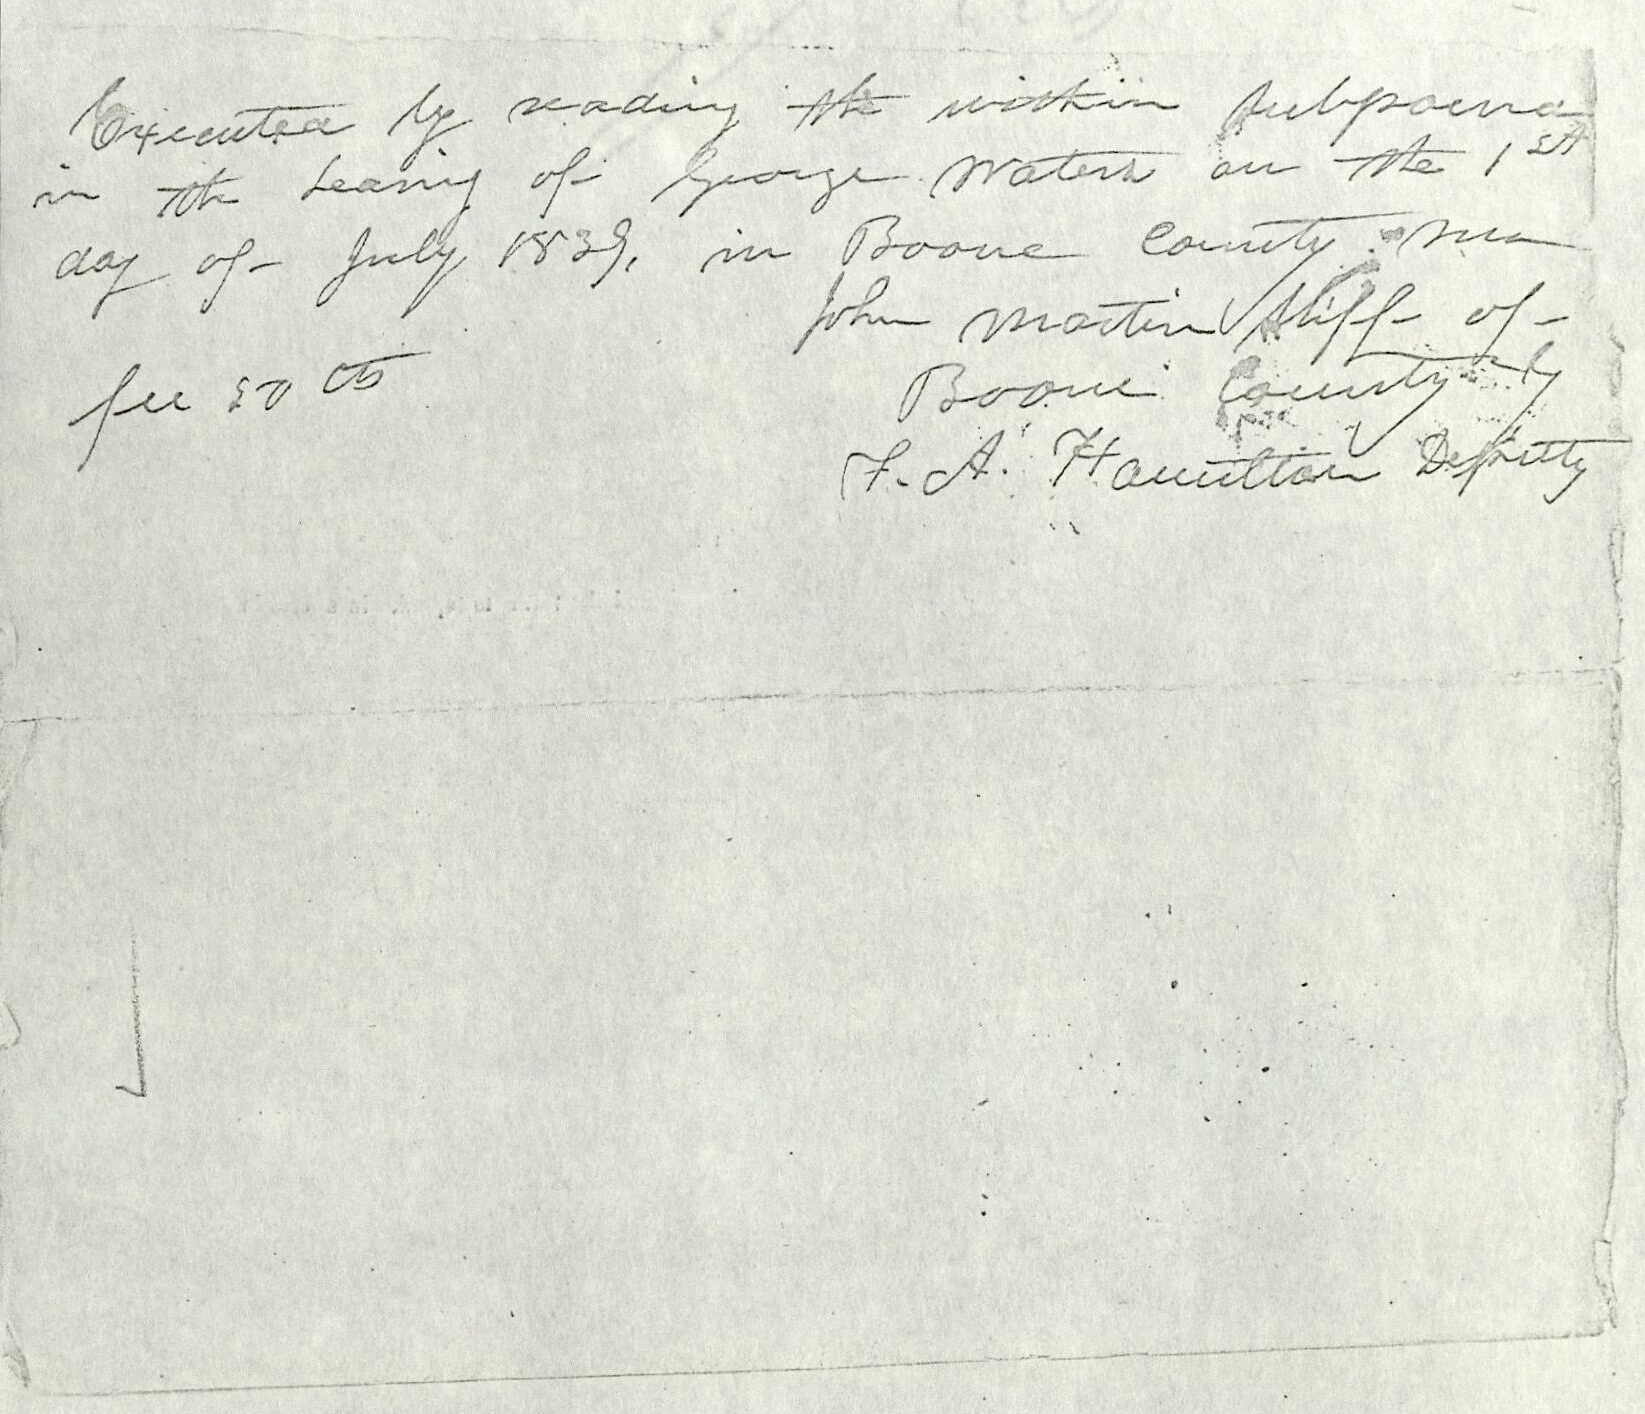 Executed by reading the within subpoena
in the hearing of George Waters on the 1st
day of July 1839, in Boone County
John Martin Shff of
Boone County by
fee 50 cts
F. A. Hamilton Deputy